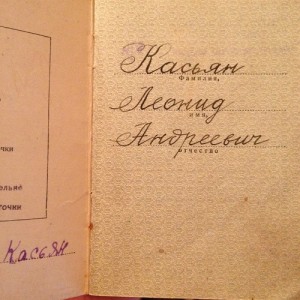 чки
тельне
точки
Касьян
Касьян
Фамилия,
Леонид
имя,
Андреевич
отчество